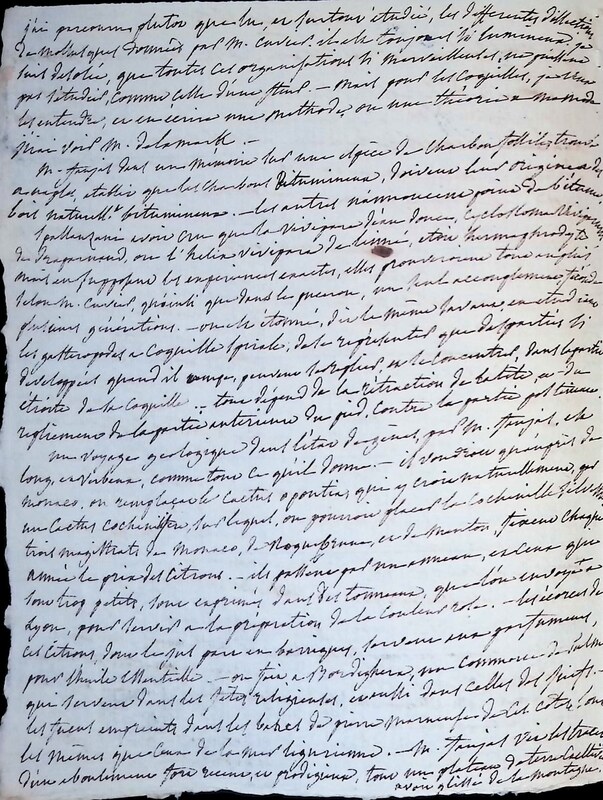 j'ai parcouru plutot que lu, et surtout étudié, les differentes dissections
de molusques données par M. Cuvier, il est toujours si lumineux. je
suis desolée, que toutes ces organisations si merveilleuses, ne puissent
pas s'étudier, comme celle d'une fleur. — mais pour les coquilles, je veux
les entendre, et en suivre une methode, ou une théorie a ma mode
j'irai voir M. delamark. —
M. faujas dans un memoire sur une espèce de charbon fossile trouvé
établit que les charbons bitumineux, doivent leur origine a des
bois naturellt bitumineux. — les autres n'annoncent point de bitume
Spallanzani avoit cru que la vivipare d'eau douce, cyclostoma viviparum
de draparnaud, ou l'helix vivipara de linné, étoit hermaphrodite
mais en supposant les expériences exactes, elles prouveroient tout au plus
selon M. cuvier, qu'ainsi que dans le puceron, un seul accouplement féconde
plusieurs générations. — on est étonné, dit le même savant en étudiant
les gasteropodes a coquille spirale, de se representer que des parties si
développées quand il rampe, peuvent se replier, et se concentrer, dans la partie
étroite de la coquille. — tout dépend de la rétraction de la tête, et du
repliement de la partie antérieure du pied, contre la partie postérieure.
un voyage geologique dans l'état de gènes, par M. faujas, est
long, et verbeux, comme tout ce qu'il donne. — il voudroit qu'auprès de
monaco, on remplaçat le cactus opontia, qui y croit naturellement, par
un cactus cochenilifer, sur lequel, on pourroit placer la cochenille
trois magistrats de Monaco, de Roquebrune, et de Menton, fixent chaque
année le prix des citrons. — ils passent par un anneau, et ceux qui
sont trop petits, sont exprimés dans des tonneaux, que l'on envoye a
Lyon, pour servir a la préparation de la couleur rose. — les écorces de
ces citrons, dont le jus part en barriques, servent aux parfumeurs,
pour l'huile essentielle. — on fait, a Bordighera, un commerce de palmes
que servent dans les fêtes religieuses, et aussi dans celles des juifs. —
les fucus empreints dans les bancs de pierre marneuse de ces cotes, sont
les mêmes que ceux de la mer ligurienne. — M. faujas vit les traces
d'un eboulement fort recent, et prodigieux, tout un plateau de terre
avoit glissé de la montagne.